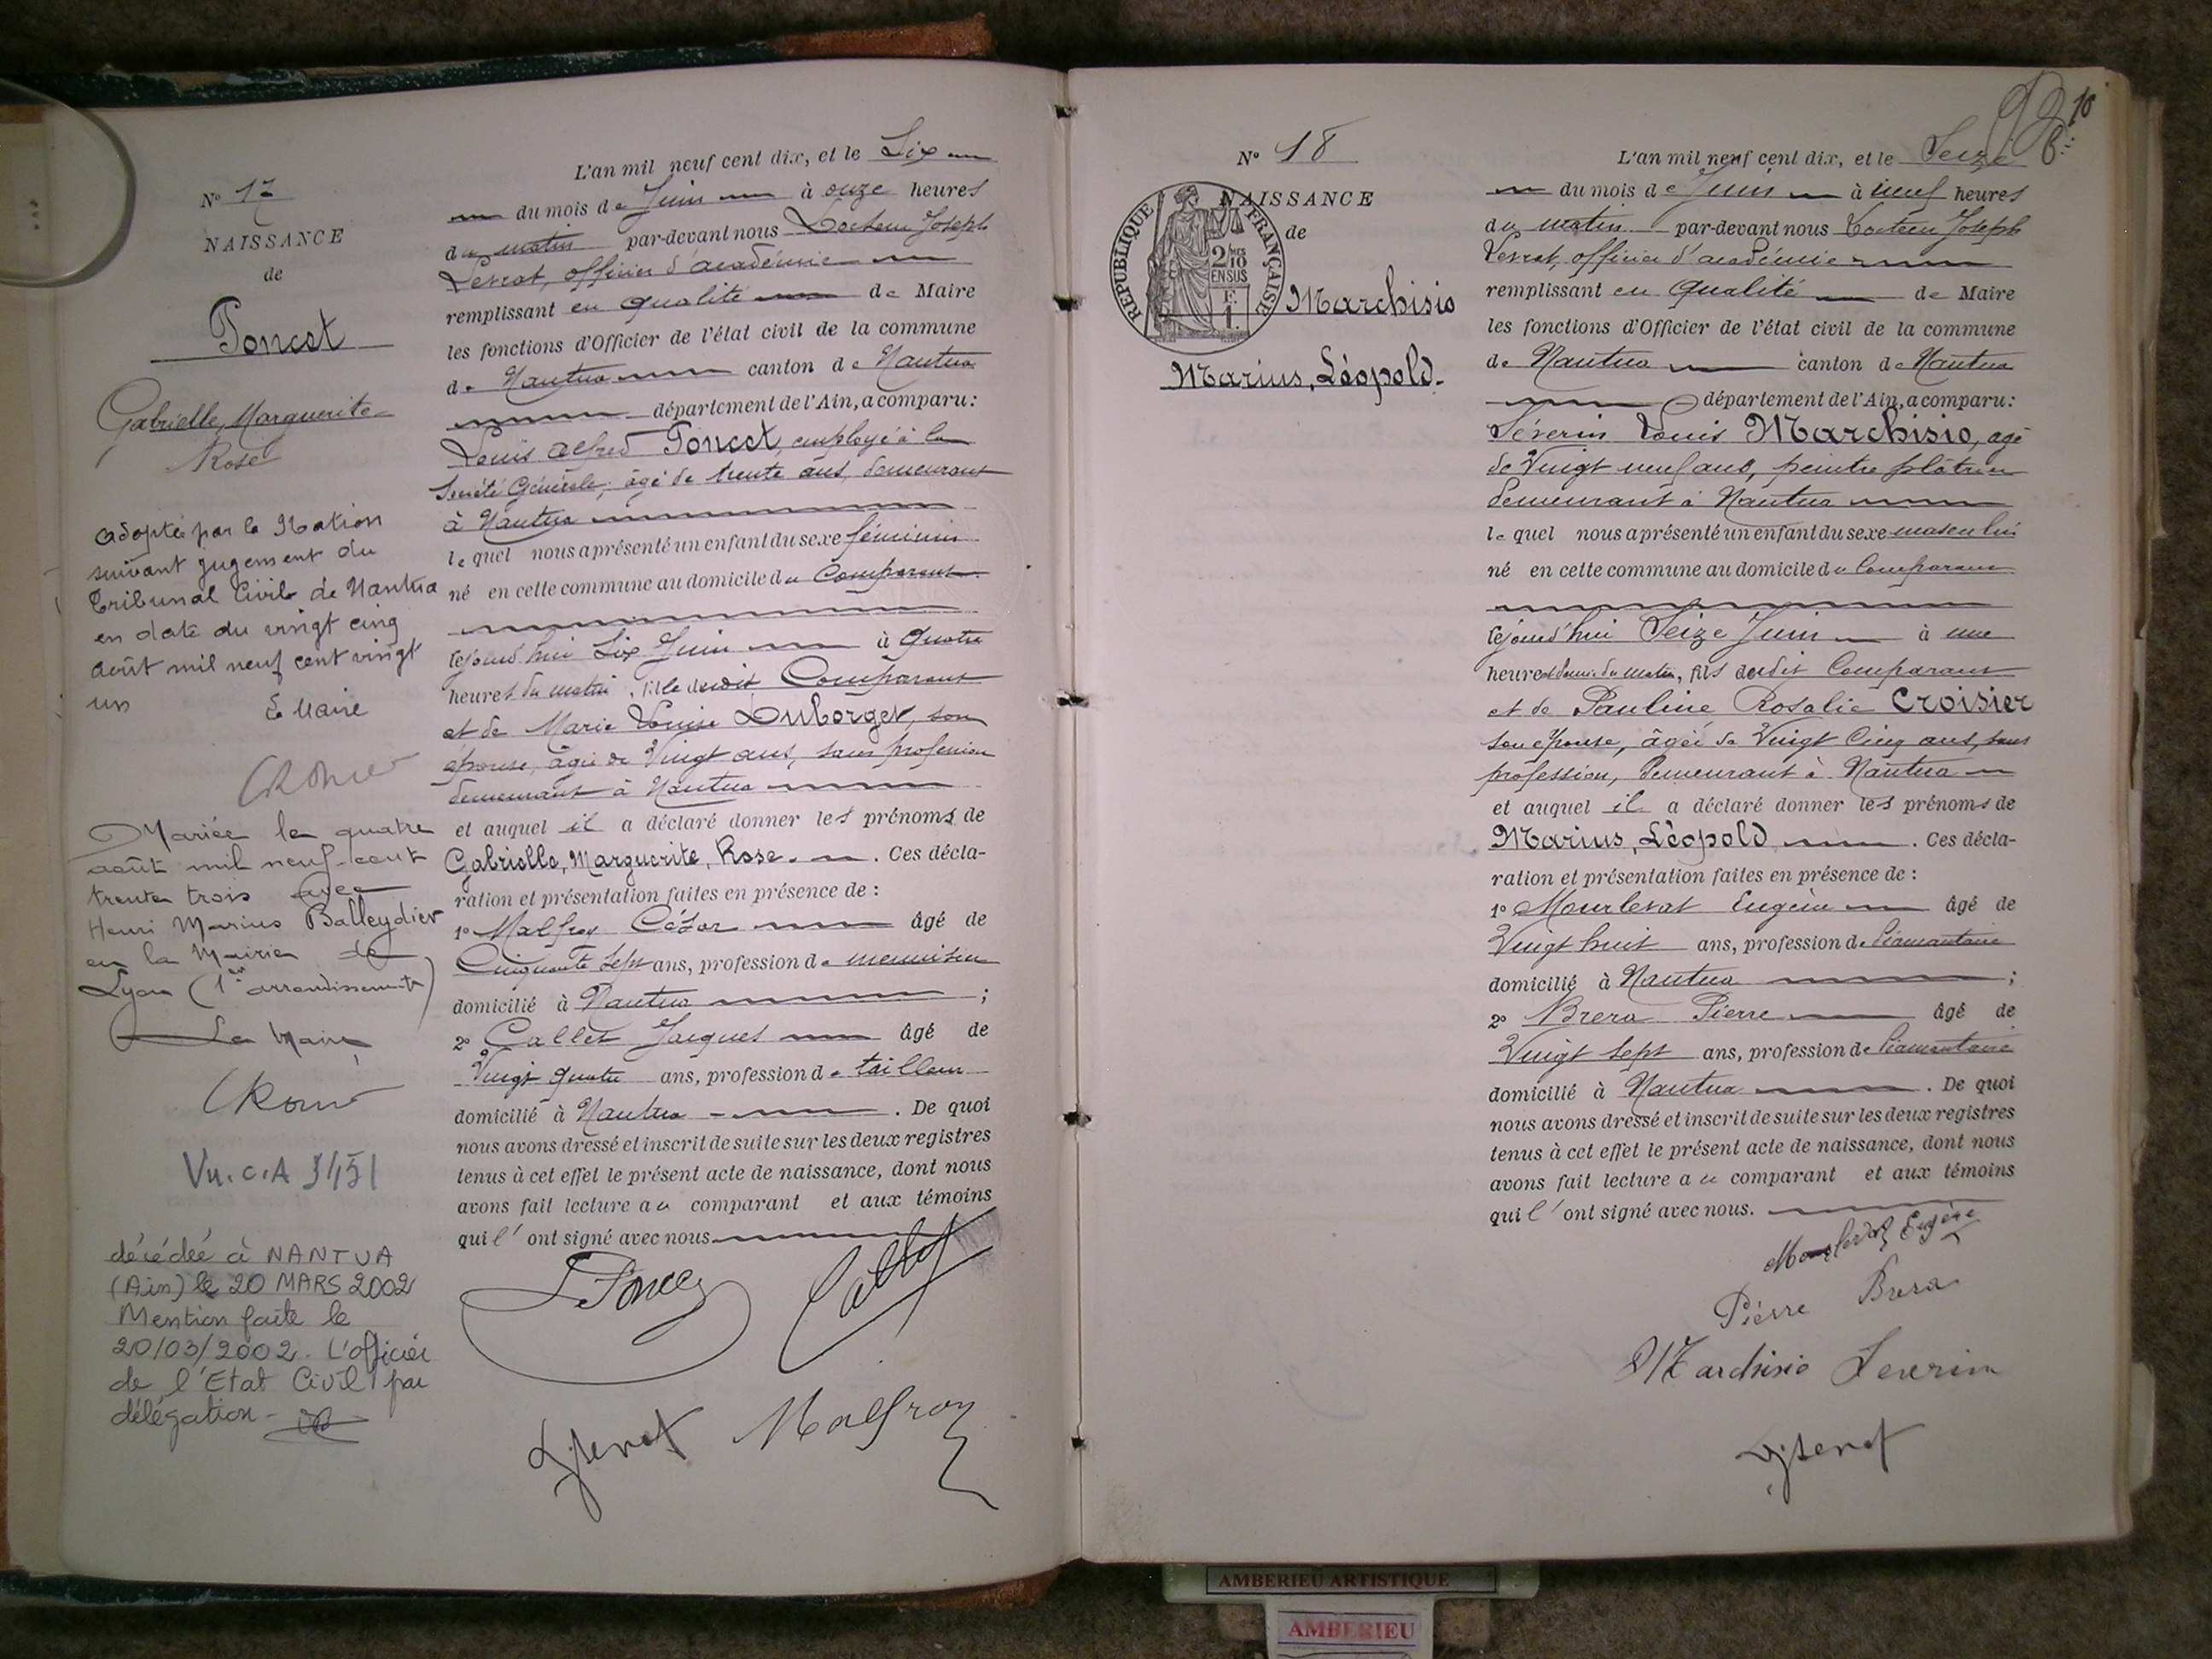 N° 17
NAISSANCE
de
Poncet
Gabrielle, Marguerite
Rose
adoptée par la Nation
suivant jugement du
Tribunal Civil de Nantua
en date du vingt cinq
août mil neuf cent vingt
un
Le Maire
Mariée le quatre
août mil neuf-cent
trente trois avec
Henri Marius Balleydier
en la Mairie de
Lyon (1er arrondissement)
Le Maire
Vu. C.A
décédée à NANTUA
(Ain) le 20 MARS 2002
Mention faite le
20/03/2002. L'officier
de l'Etat Civil par
délégation -
L'an mil neuf cent dix, et le Six
du mois de Juin à onze heures
du matin par-devant nous Docteur Joseph
Levrat, officier d'académie
remplissant en qualité de Maire
les fonctions d'Officier de l'état civil de la commune
de Nantua canton de Nantua
département de l'Ain, a comparu:
Louis Alfred Poncet, employé à la
Société Générale, âgé de trente ans, demeurant
à Nantua
lequel nous a présenté un enfant du sexe féminin
né en cette commune au domicile du Comparant
cejourd'hui Six Juin à quatre
heures du matin, fille dudit Comparant
et de Marie Louise Duborget, son
épouse, âgée de Vingt ans, sans profession
demeurant à Nantua
et auquel il a déclaré donner les prénoms de
Gabrielle, Marguerite, Rose. Ces décla-
ration et présentation faites en présence de :
1° Malfroy César âgé de
Cinquante sept ans, profession de menuisier
domicilié à Nantua ;
2° Callet Jacques âgé de
Vingt quatre ans, profession de tailleur
domicilié à Nantua . De quoi
nous avons dressé et inscrit de suite sur les deux registres
tenus à cet effet le présent acte de naissance, dont nous
avons fait lecture au comparant et aux témoins
qui l'ont signé avec nous
L Poncet
Callet
Malfroy
N° 18
NAISSANCE
de
RÉPUBLIQUE FRANÇAISE
2/10
EN SUS
F.
1.
Marchisio
Marius, Léopold.
10
L'an mil neuf cent dix, et le Seize
du mois de Juin à neuf heures
du matin par-devant nous Docteur Joseph
Levrat, officier d'académie
remplissant en qualité de Maire
les fonctions d'Officier de l'état civil de la commune
de Nantua canton de Nantua
département de l'Ain, a comparu:
Séverin Louis Marchisio, agé
de Vingt neuf ans, peintre plâtrier
demeurant à Nantua
lequel nous a présenté un enfant du sexe masculin
né en cette commune au domicile du Comparant
cejourd'hui Seize Juin à une
heure et demie du matin, fils dudit Comparant
et de Pauline Rosalie Croisier
son épouse, âgée de Vingt Cinq ans, sans
profession, demeurant à Nantua
et auquel il a déclaré donner les prénoms de
Marius, Léopold . Ces décla-
ration et présentation faites en présence de :
1° Mourlevat Eugène âgé de
Vingt huit ans, profession de diamantaire
domicilié à Nantua ;
2° Brera Pierre âgé de
Vingt sept ans, profession de diamantaire
domicilié à Nantua . De quoi
nous avons dressé et inscrit de suite sur les deux registres
tenus à cet effet le présent acte de naissance, dont nous
avons fait lecture au comparant et aux témoins
qui l'ont signé avec nous.
Mourlevat Eugène
Pierre Brera
Marchisio Severin
AMBERIEU ARTISTIQUE
AMBERIEU